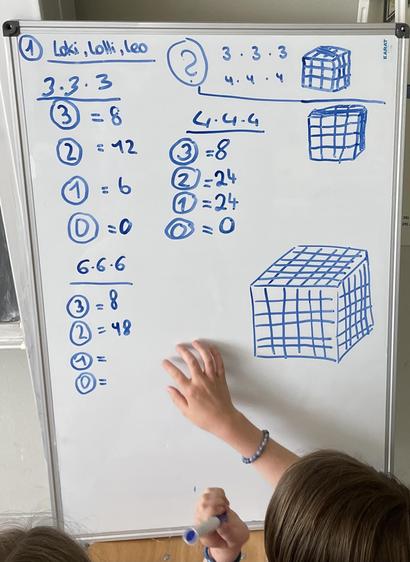 1 Loki, Lolli, Leo
? 3 · 3 · 3
4 · 4 · 4
3 · 3 · 3
3 = 8
2 = 12
1 = 6
0 = 0
4 · 4 · 4
3 = 8
2 = 24
1 = 24
0 = 0
6 · 6 · 6
3 = 8
2 = 48
1 =
0 =